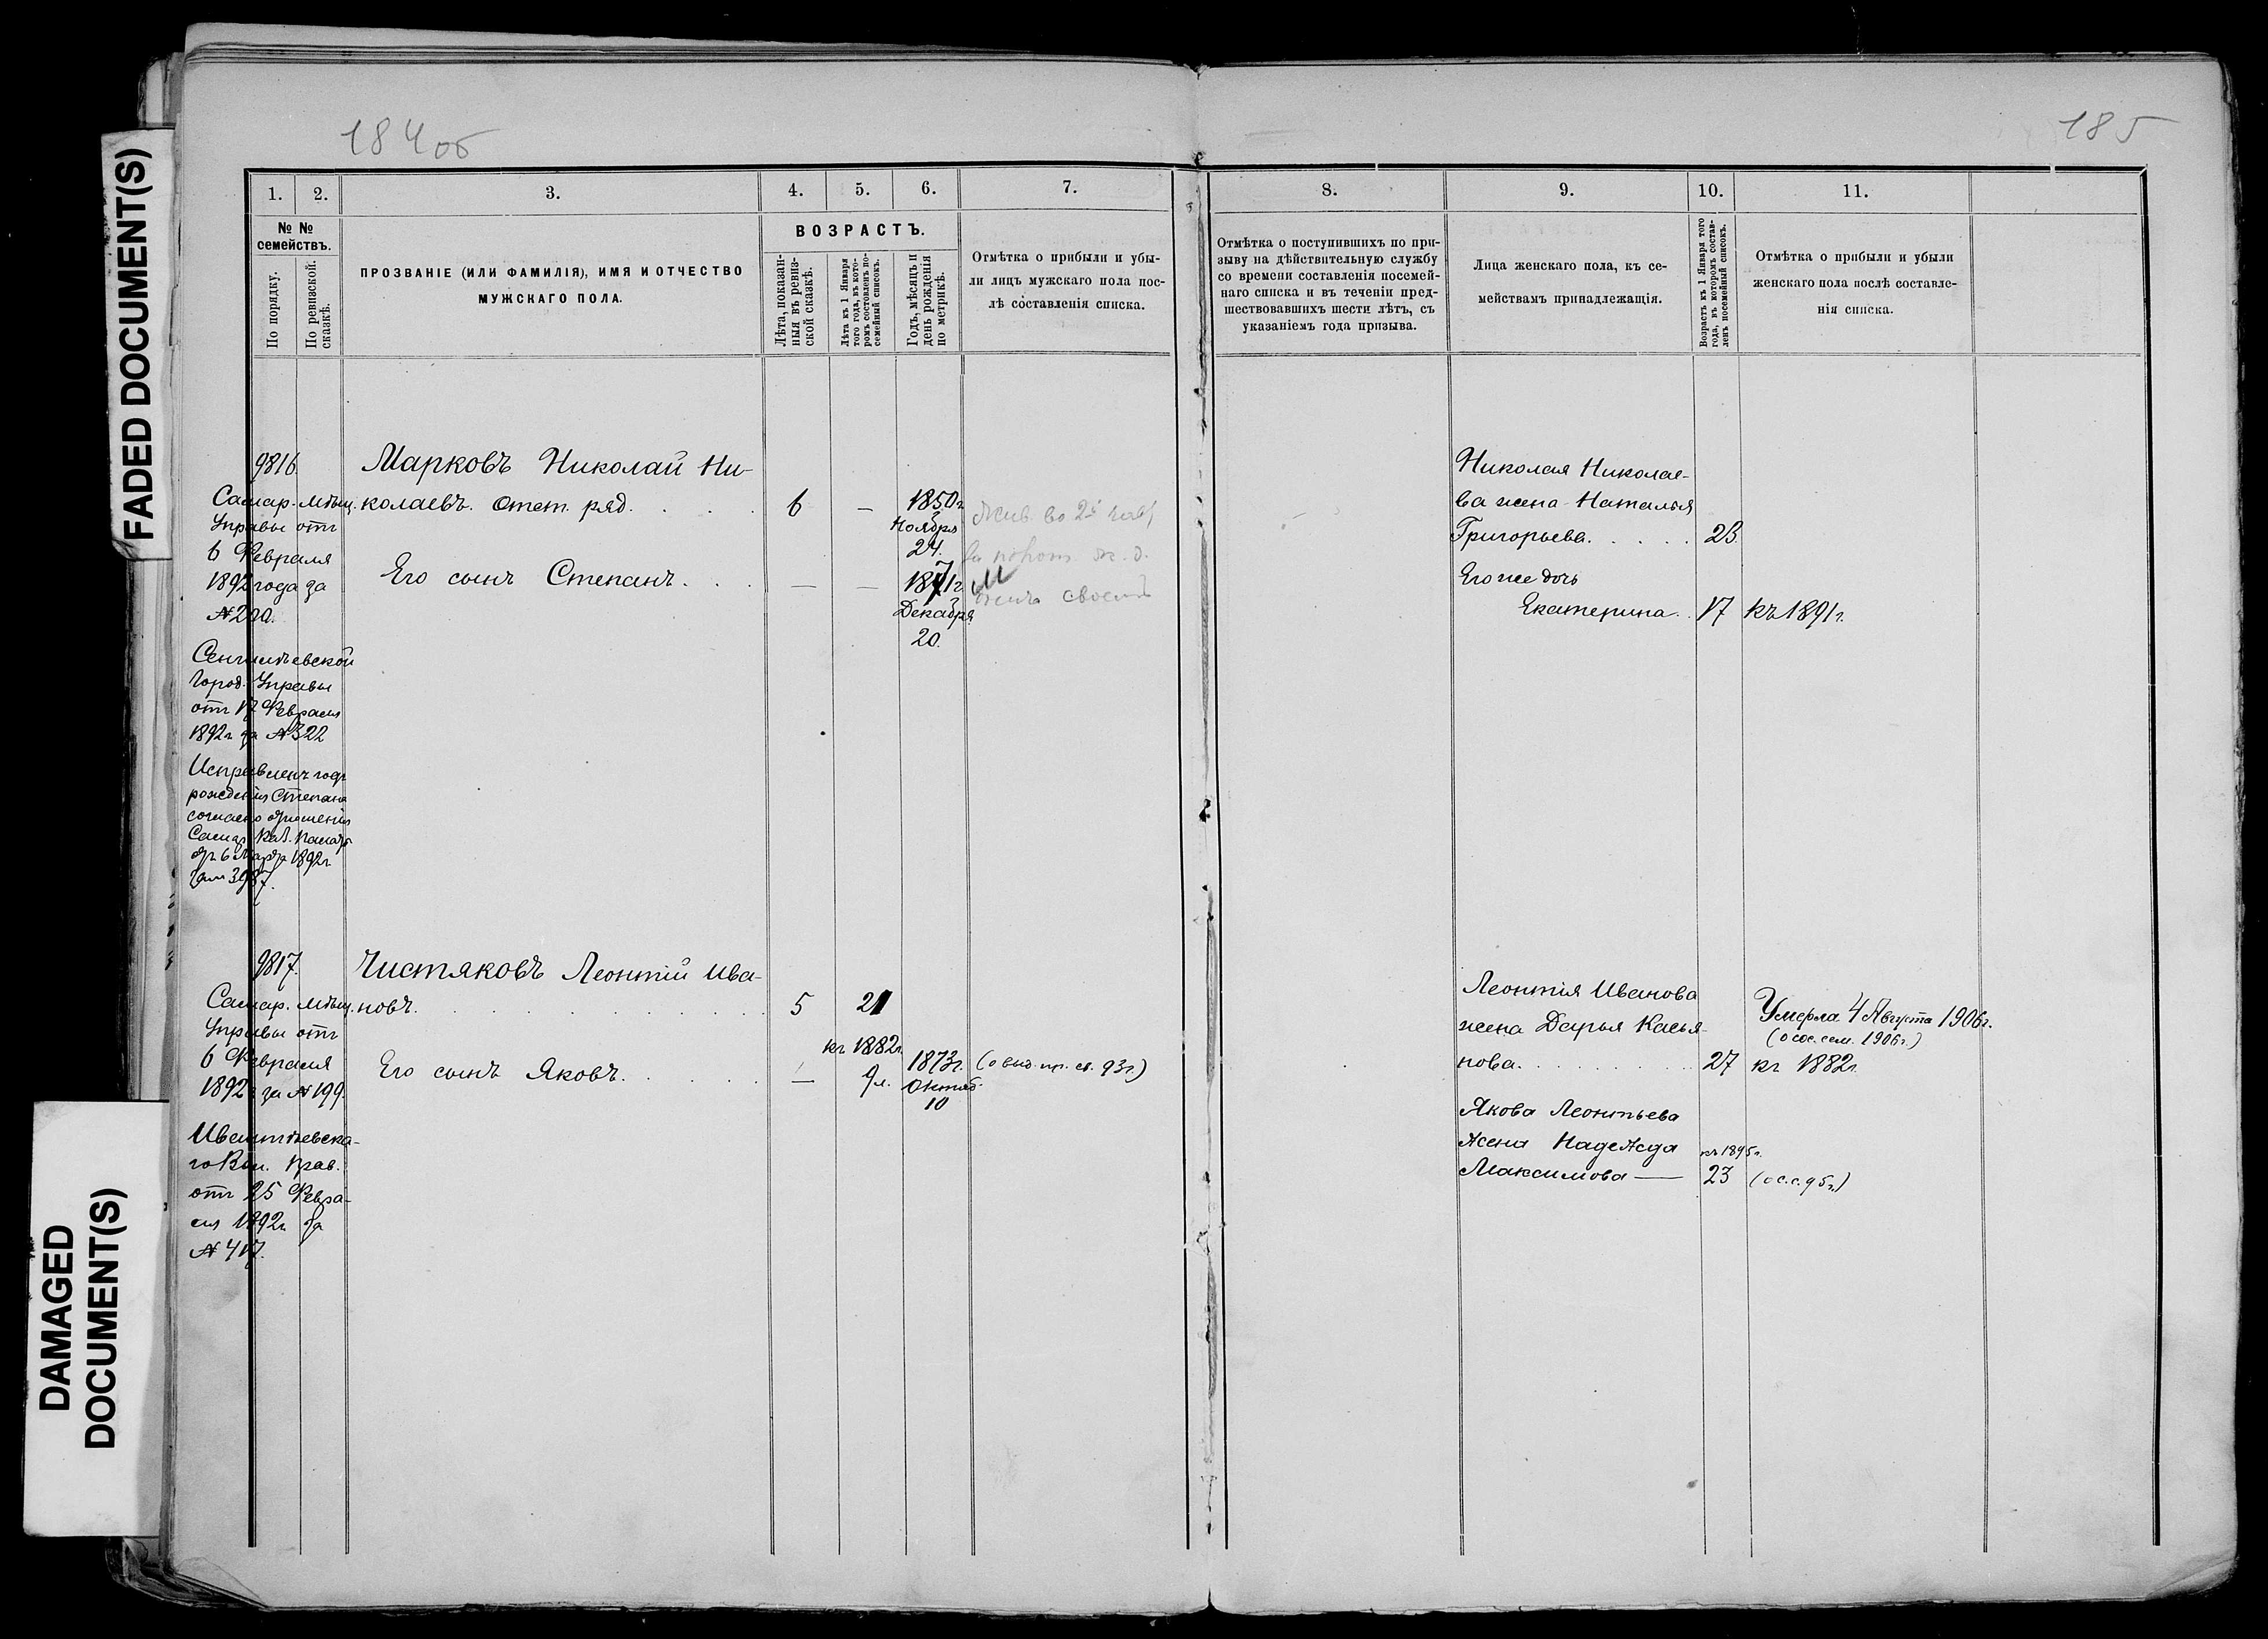 184 об
185
FADED DOCUMENT(S)
DAMAGED
DOCUMENT(S)
1.
2.
3.
4.
5.
6.
7.
8.
9.
10.
11.
№ №
семействъ.
По порядку.
По ревизской
сказкѣ.
ПРОЗВАНІЕ (ИЛИ ФАМИЛІЯ), ИМЯ И ОТЧЕСТВО
МУЖСКАГО ПОЛА.
ВОЗРАСТЪ.
Лѣта, показан-
ныя въ ревиз-
ской сказкѣ.
Лѣта къ 1 Января
того года, въ кото-
ромъ составленъ по-
семейный списокъ.
Годъ, мѣсяцъ и
день рожденія
по метрикѣ.
Отмѣтка о прибыли и убы-
ли лицъ мужскаго пола пос-
лѣ составленія списка.
Отмѣтка о поступившихъ по при-
зыву на дѣйствительную службу
со времени составленія посемей-
наго списка и въ теченіи пред-
шествовавшихъ шести лѣтъ, съ
указаніемъ года призыва.
Лица женскаго пола, къ се-
мействамъ принадлежащія.
Возрастъ къ 1 Января того
года, въ которомъ состав-
ленъ посемейный списокъ.
Отмѣтка о прибыли и убыли
женскаго пола послѣ составле-
нія списка.
9816
Самар. мѣщ.
Управы отъ
6 Февраля
1892 года за
№ 200.
Сенгилѣевской
Город. Управы
отъ 17 Февраля
1892 г. за № 322
Исправленъ годъ
рожденія Степана
согласно
Самар. Каз. Палаты
6 Марта 1892 г.
Марковъ Николай Ни-
колаевъ. Отст. ряд.
6
—
1850 г.
Ноября
24.
Его сынъ Степанъ.
—
—
1871 г.
Декабря
20.
Николая Николае-
ва жена Наталья
Григорьева. 23
Его же дочь
Екатерина. 17 къ 1891 г.
9817.
Самар. мѣщ.
Управы отъ
6 Февраля
1892 г. за № 199.
Ивантѣевска-
го Вол. Прав.
отъ 25 Февра-
ля 1892 г. за
№ 417.
Чистяковъ Леонтій Ива-
новъ.
5
21
къ 1882 г.
Его сынъ Яковъ.
—
9 л.
1873 г.
Октяб.
10
(о выд. пр. св. 93 г.)
Леонтія Иванова
жена Дарья Касья-
нова. 27 къ 1882 г.
Умерла 4 Августа 1906 г.
(о сос. сем. 1906 г.)
Якова Леонтьева
жена Надежда къ 1895 г.
Максимова — 23 (о с. с. 95 г.)